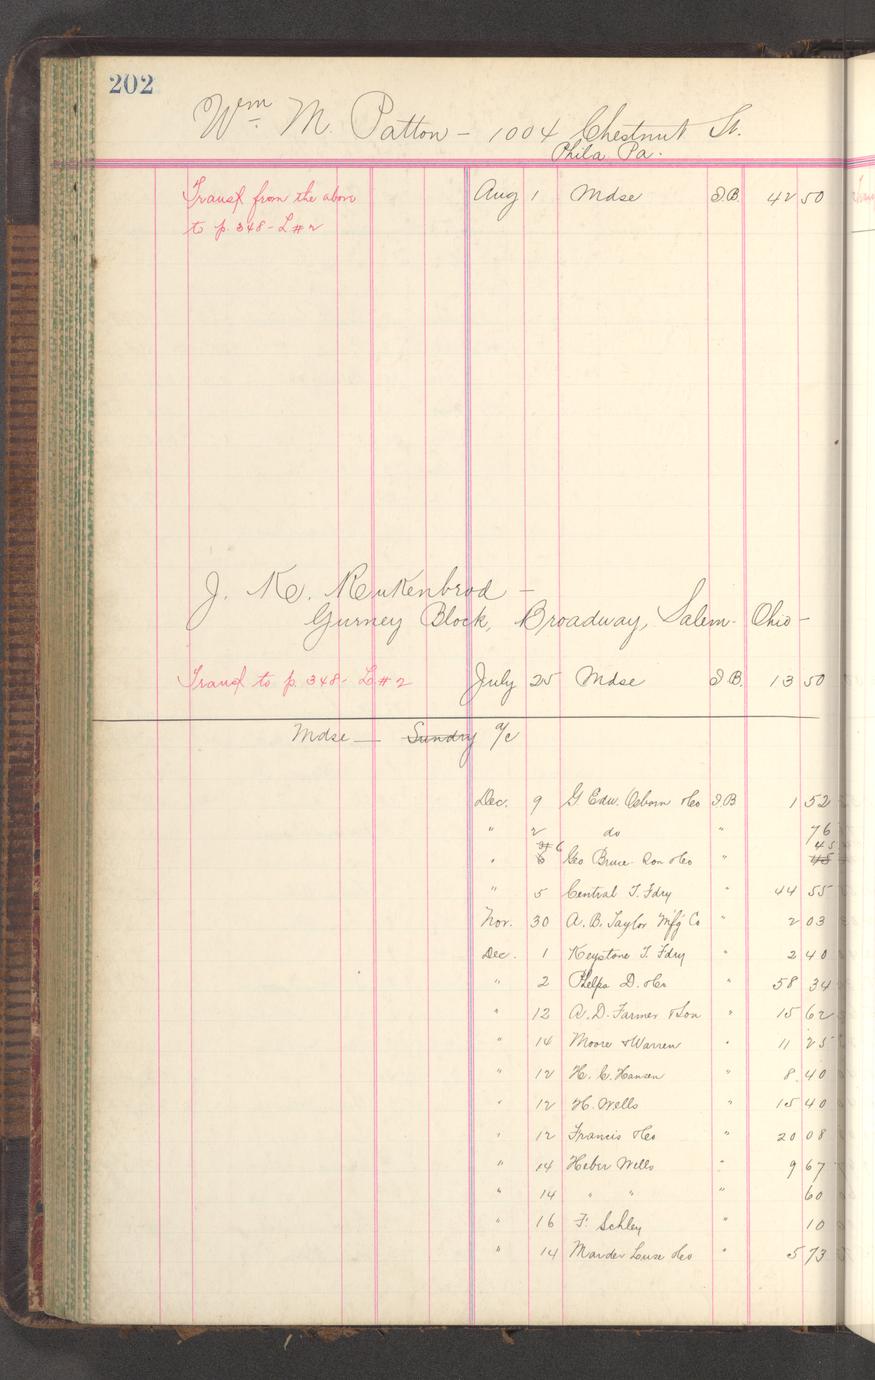 202
Wm M. Patton - 1004 Chestnut St.
Phila Pa.
Transf from the above Aug 1 Mdse I.B. 42 50
to p. 348 - L # 2
J. K. Rukenbrod -
Gurney Block, Broadway, Salem - Ohio -
Transf to p. 348 - L # 2 July 25 Mdse I.B. 13 50
Mdse — Sundry a/c
Dec. 9 G Edw. Osborn & Co I B 1 52
" 2 do " 76
" 6 Geo Bruce Son & Co " 45
" 5 Central T. Fdry " 44 55
Nov. 30 A. B. Taylor Mfg Co " 2 03
Dec. 1 Keystone T. Fdry " 2 40
" 2 Phelps D. & Co " 58 34
" 12 A. D. Farmer & Son " 15 62
" 14 Moore & Warren " 11 25
" 12 H. C. Hansen " 8 40
" 12 H. Wells " 15 40
" 12 Francis & Co " 20 08
" 14 Heber Wells " 9 67
" 14 " " " 60
" 16 F. Schley " 10
" 14 Marder Luse & Co " 5 73